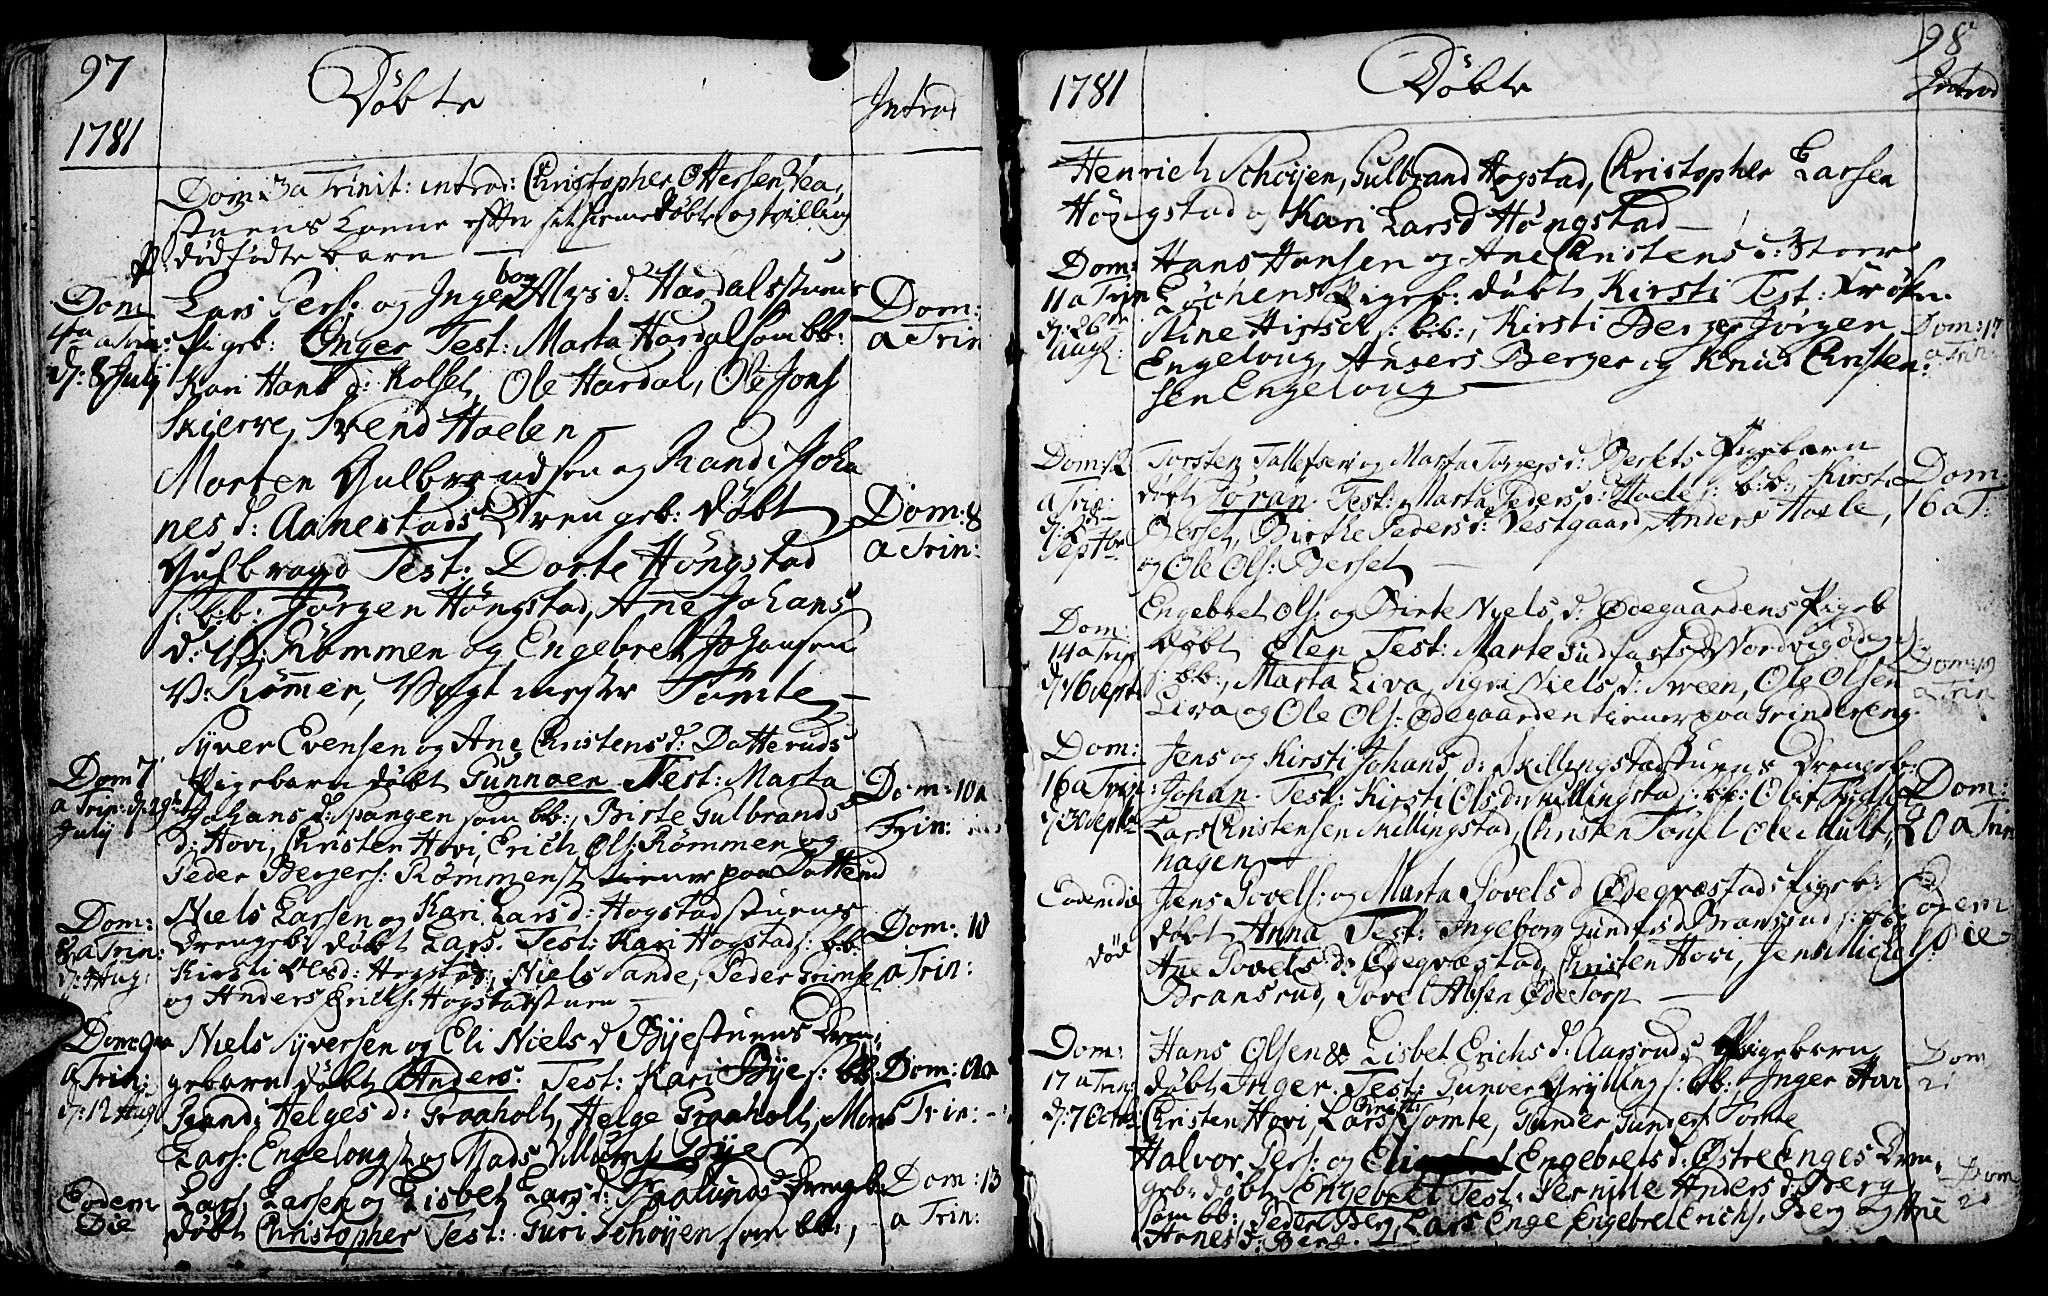 97
Döbte
Introd
1781
Dom: 3 a Trinit: introd: Christopher Ottersen
stuens Kone efter sit hiemedöbte og tvilling
dödfödte barn —
Dom
4 a Trin:
d: 8 July
Lars Pers: og Ingebor Alys d: Hardalsstuens
Pigeb: Inger Test: Marta Hardal som bb:
Kari Hans d: Kolset, Ole Hardal, Ole Jons
Skierve, Svend Hoelen —
Dom:
a Trin
Morten Gulbrandsen og Randi Joha
nes d: Aanestads Drengeb: döbt
Gulbrand Test: Dorte Höngstad
s: b:b: Jörgen Höngstad, Ane Johans
d: V: Römmen og Engebret Johansen
V: Römmen, Vogt mester Tomte —
Dom: 8
a Trin:
Dom 7
a Trin: d: 29de
July
Syver Evensen og Ane Christens d: Datteruds
Pigebarn döbt Gunnaer Test: Marta
Johans d: Spangen som bb:, Birte Gulbrands
d: Hovi, Christen Hovi, Erich Ols: Römmen og
Peder Bergers: Römmens tiener paa Datterud
Dom: 10 a
Trin:
Dom:
8 a Trin:
d: Aug:
Niels Larsen og Kari Lars d: Hogstadstuens
Drengeb: döbt Lars. Test: Kari Hogstad s: bb:
Kirsti d: Hogstad, Niels Sande, Peder Grimse
og Anders Erichs: Hogstadstuen —
Dom: 10
a Trin:
Dom: 9 a
a Trin:
d: 12 Aug
Niels Syversen og Eli Niels d Byestuens Dren,
gebarn döbt Anders. Test: Kari Bye s: bb:
Randi Helges d: Graaholt, Helge Graaholt, Mons
Lars: Engeloug og Mads Villums Bye
Dom: 12 a
Trin:
Eodem
Die
Lars Larsen og Lisbet Lars d: Drengeb:
döbt Christopher Test: Guri Schöyen som bb:,
Dom: 13
a Trin:
98
1781
Döbte
Introd
Henrich Schöyen, Gulbrand Hogstad, Christopher Larsen
Höngstad og Kari Lars d Höngstad —
Dom:
11 a Trin
d: 26de
Aug:
Hans Hansen og Ane Christens d: Store
Löchens Pigeb: döbt Kirsti Test: Frökn.
Stine Hirsch s: b:b:, Kirsti Berger Jörgen
Engeloug, Anders Berger og Knud Christen:
sen Engeloug —
Dom: 17
a Trin
Dom: 12
a Trin:
d: 2
Septbr
Torsten Tallefsen og Marta d: Bersets Pigebarn
döbt Jöran. Test: Marta Peders d: Hoele s: b:b:, Kirsti
Berset, Birthe Peders d: Vestgaard, Anders Hoele,
og Ole Ols: Berset —
Dom:
16 a T:
Dom:
14 a Trin
d: 16 Sept
Engebret Ols: og Birte Niels d: Ödegaardens Pigeb
döbt Elen Test: Marte
s: bb:, Marta Liva, Sigri Niels d: Sveen, Ole Olsen
Liva og Ole Ols: Ödegaarden tiener paa Grindereng.
Dom: 19
a Trin
Dom:
16 a Trin:
d: 30 Septbr
Jens og Kirsti Johans d: Skillingstadstuens Drengeb:
Johan. Test: Kirsti Ols d: Skillingstad s: bb: Oluf
Lars Christensen Skillingstad, Christen Ole Mült,
hagen —
Dom:
20 a Trin
Eodem die
död
Jens Povels: og Marta Povels d Ödegræstads Pigeb:
döbt Anna Test: Ingeborg d Bransrud s: bb:
Ane Povels d: Ödegræstad, Christen Hovi, Jens Michels
Bransrud, Povel Ödetorp —
Eodem
Die
Dom:
17 a Trin:
d: 7 Octbr:
Hans Olsen & Lisbet Erichs d: Aasruds Pigebarn
döbt Inger. Test: Gunver Grylling s: bb:, Inger Hovi
Christen Hovi, Lars Christ: Tomte, Gunder Gunders: Tomte
Dom
2
Halvor Pers: og Eli Engebrets d: Östre Enges Dren,
geb: döbt Engebret Test: Pernille Anders d: Berg
som bb:, Peder Berg, Lars Enge Engebret Erichs: Berg og Ane
Arnes d: Berg.
Dom
2